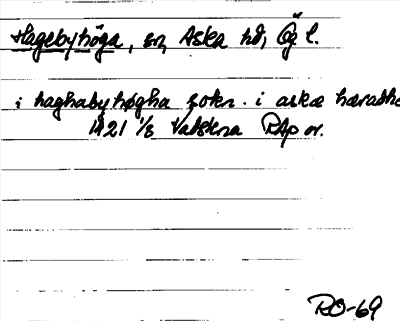 Hagebyhöga, sn, Aska hd, Ög l.
i haghabyhøgha sokn. i askæ hæradhe
1421 1/8 Vatstena RAp or.
RO-69